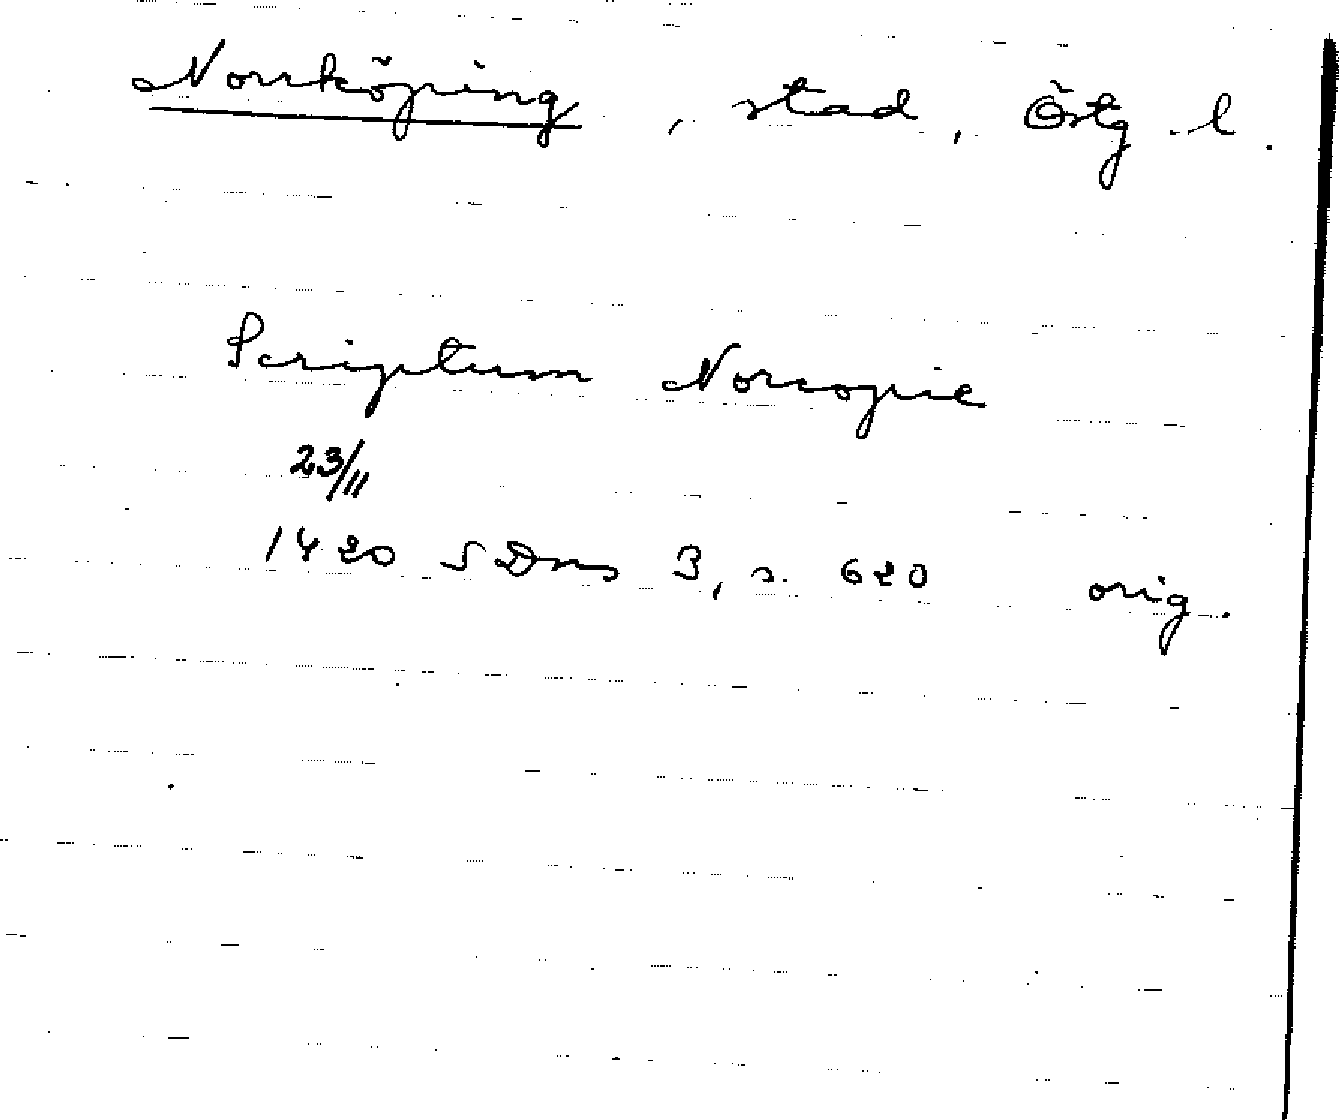 Norrköping, stad, Östg. l.
Scriptum Norcopie
23/11
1420 SDns 3, s. 620 orig.